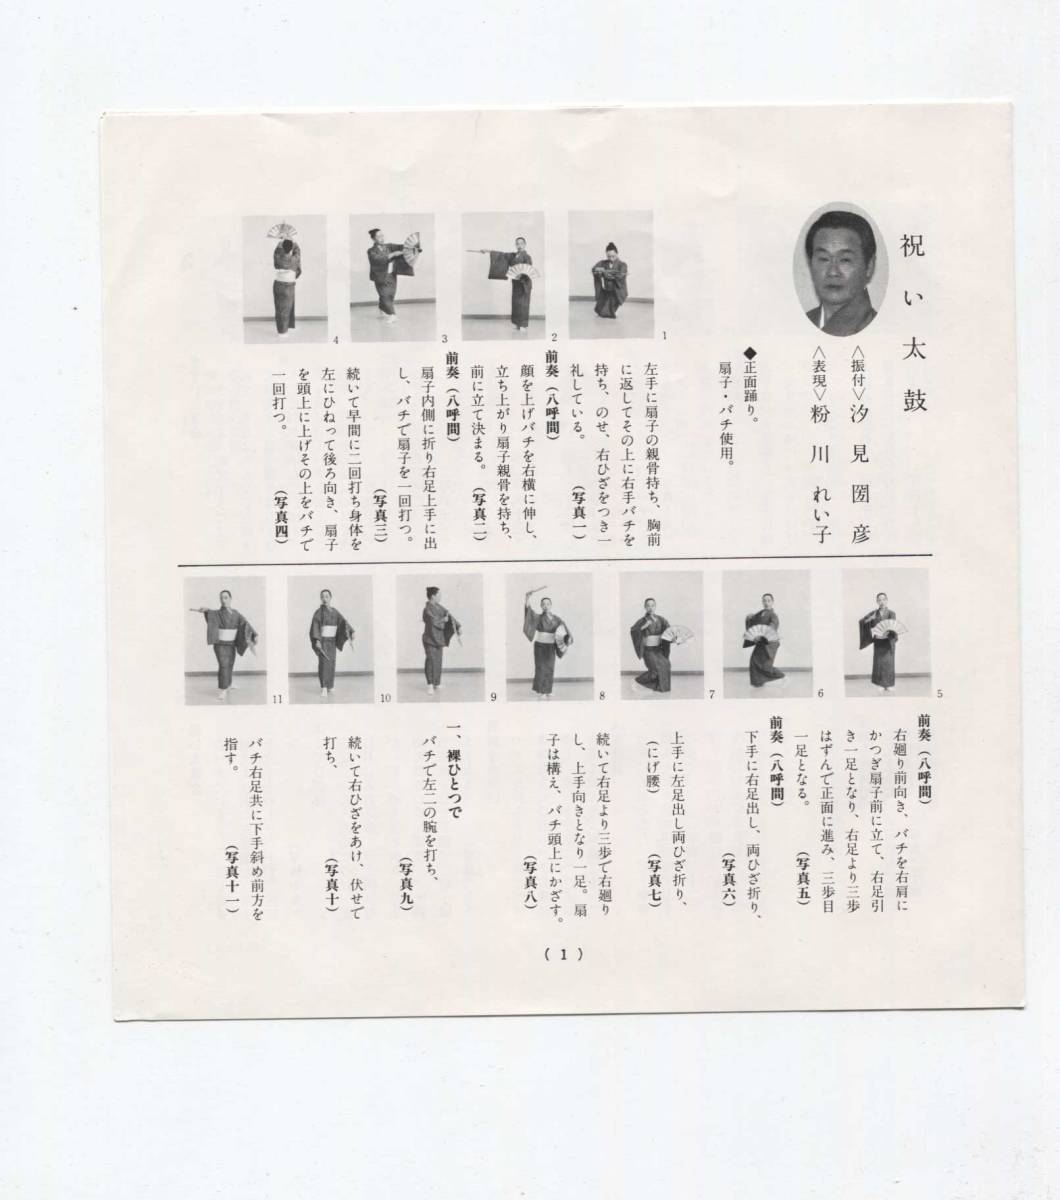 祝い太鼓
＜振付＞汐見国彦
＜表現＞粉川れい子
◆正面踊り。
扇子・バチ使用。
1
左手に扇子の親骨持ち、胸前
に返してその上に右手バチを
持ち、のせ、右ひざをつき一
礼している。（写真一）
2
前奏（八呼間）
顔を上げバチを右横に伸し、
立ち上がり扇子親骨を持ち、
前に立て決まる。（写真二）
3
前奏（八呼間）
扇子内側に折り右足上手に出
し、バチで扇子を一回打つ。
（写真三）
4
続いて早間に二回打ち身体を
左にひねって後ろ向き、扇子
を頭上に上げその上をバチで
一回打つ。（写真四）
5
前奏（八呼間）
右廻り前向き、バチを右肩に
かつぎ扇子前に立て、右足引
き一足となり、右足より三歩
はずんで正面に進み、三歩目
一足となる。（写真五）
6
前奏（八呼間）
下手に右足出し、両ひざ折り、
（写真六）
7
上手に左足出し両ひざ折り、
（にげ腰）（写真七）
8
続いて右足より三歩で右廻り
し、上手向きとなり一足。扇
子は構え、バチ頭上にかざす。
（写真八）
9
一、裸ひとつで
バチで左二の腕を打ち、
（写真九）
10
続いて右ひざをあけ、伏せて
打ち、（写真十）
11
バチ右足共に下手斜め前方を
指す。（写真十一）
（1）